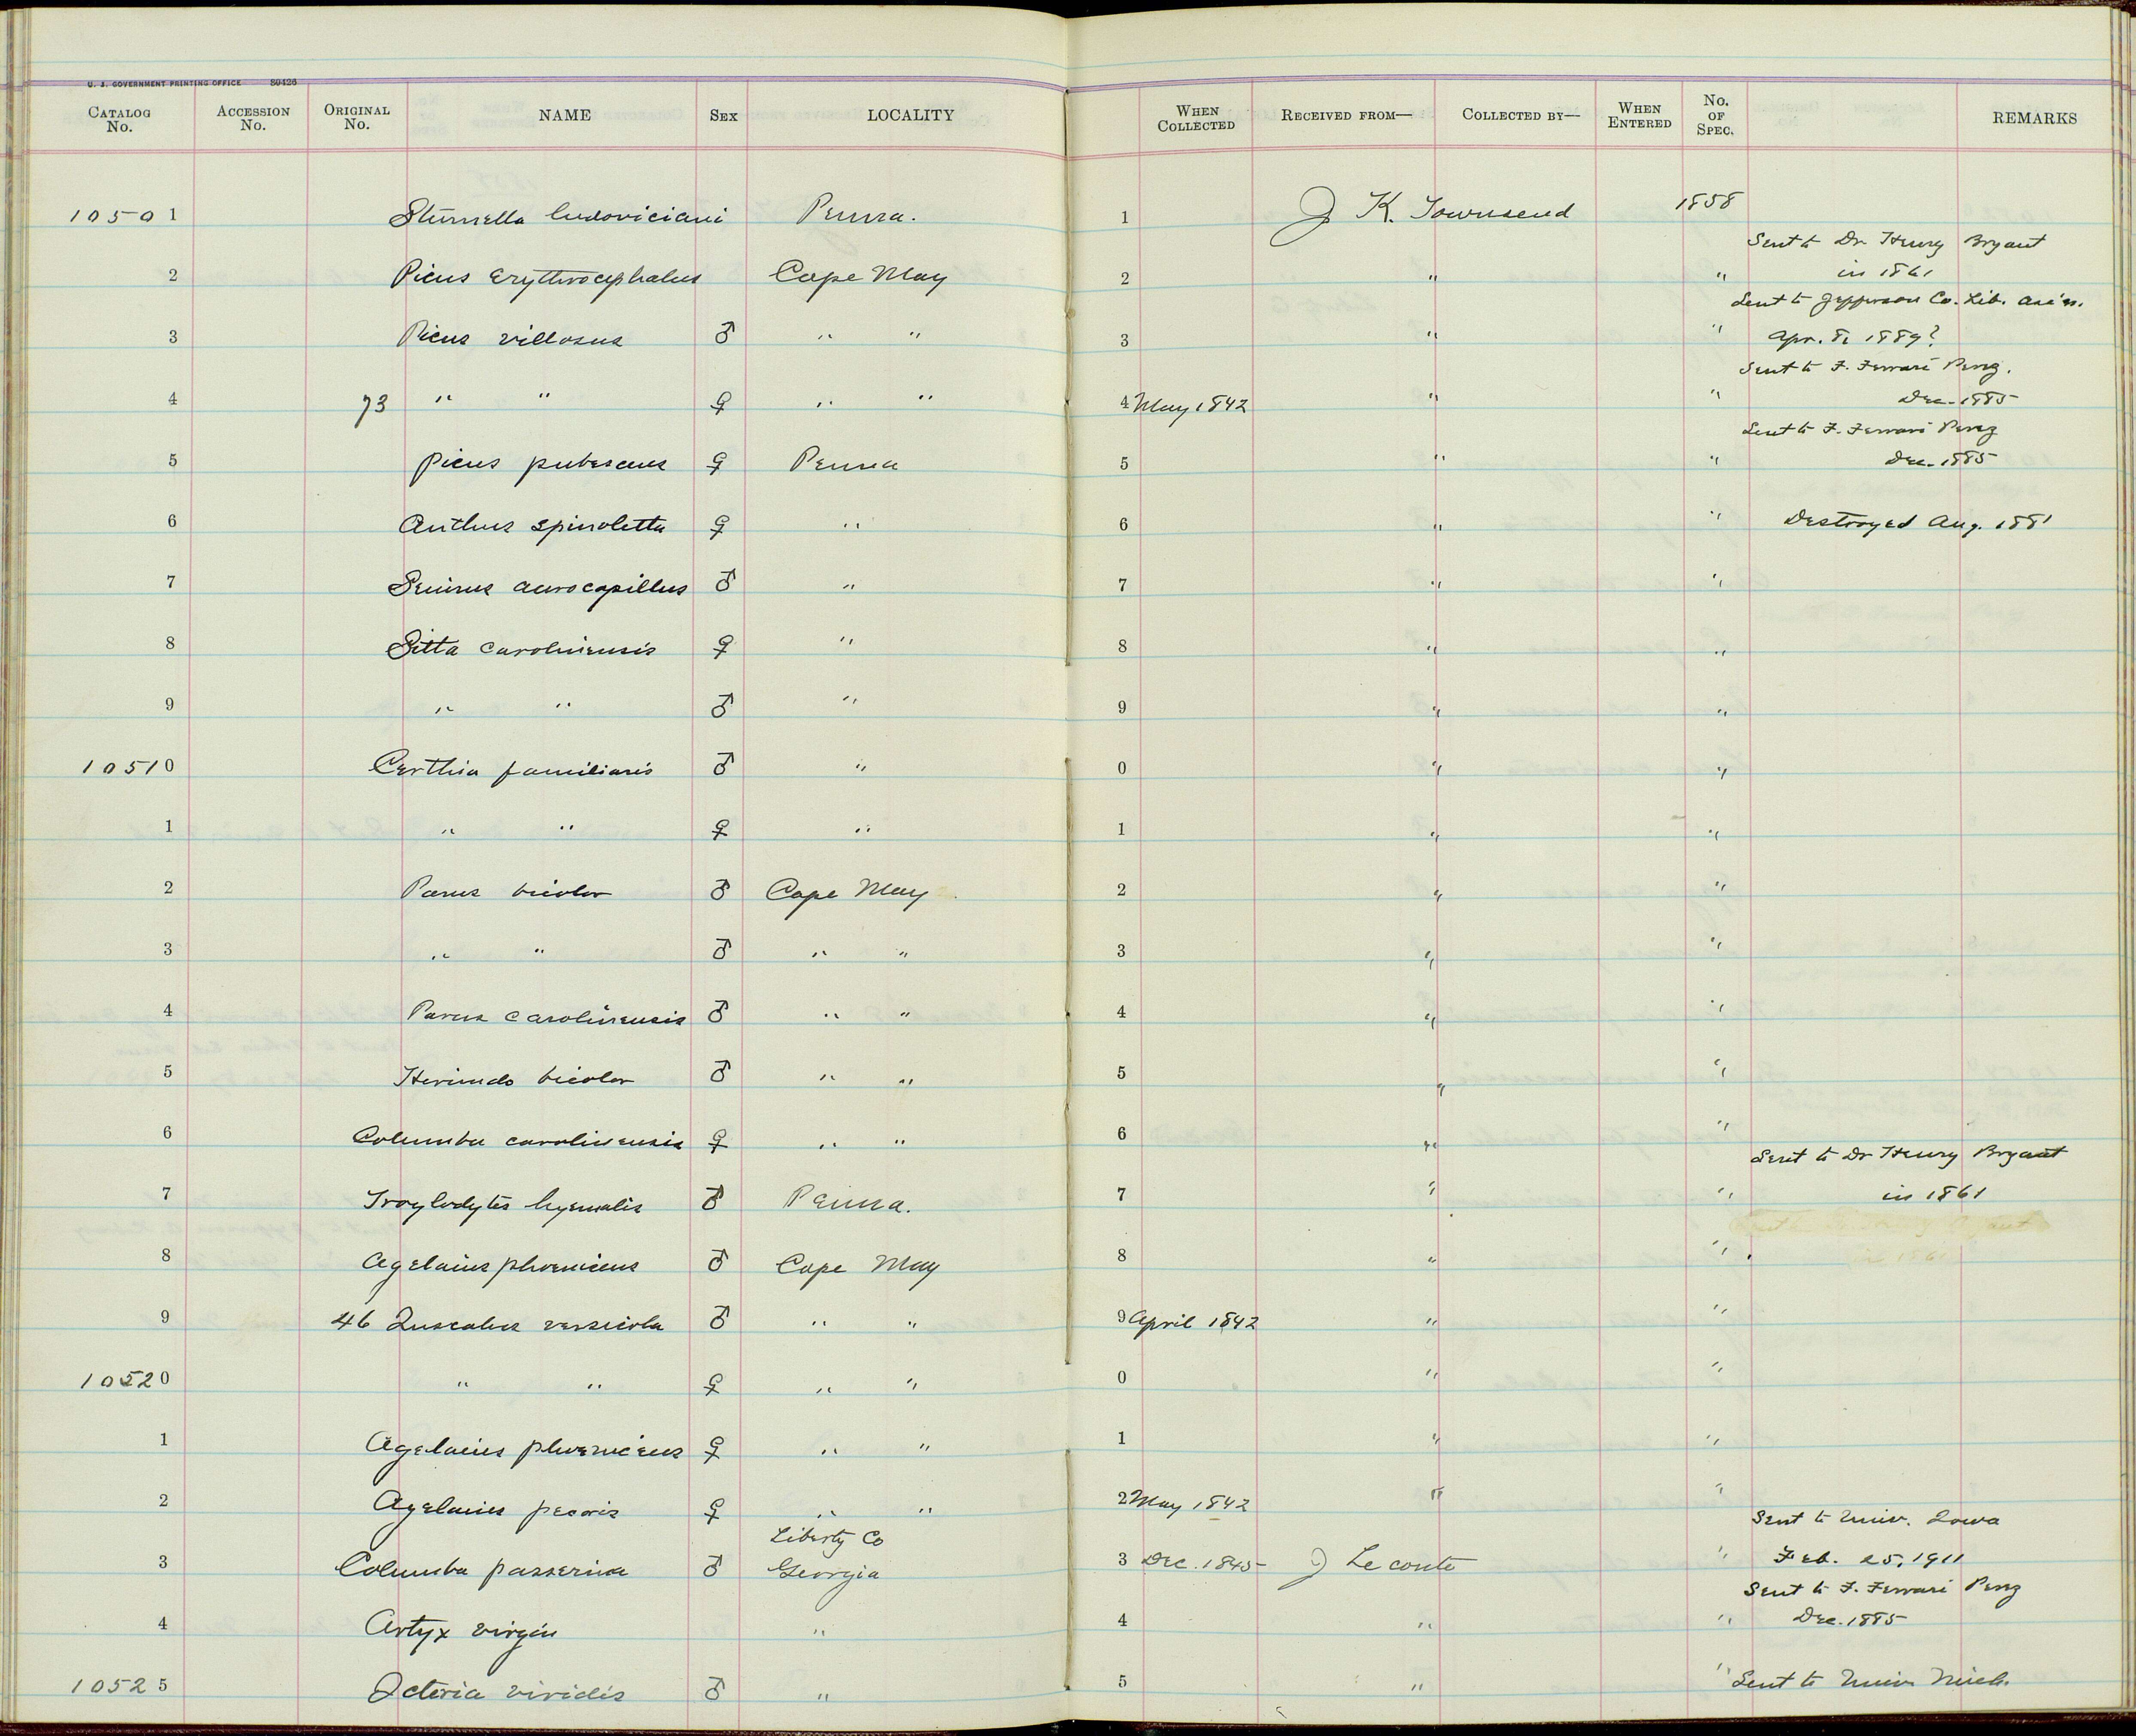 U. S. GOVERNMENT PRINTING OFFICE 80426
CATALOG No. ACCESSION No. ORIGINAL No. NAME SEX LOCALITY WHEN COLLECTED RECEIVED FROM— COLLECTED BY— WHEN ENTERED No. OF SPEC. REMARKS
10501 Sturnella ludoviciani Penna. 1 J K. Townsend 1858
Sent to Dr Henry Bryant
2 Picus Erythrocephalus Cape May 2 " " in 1861
Sent to Jefferson Co. Lib. Ass'n.
3 Picus villosus ♂ " " 3 " " Apr. 8, 1889?
Sent to F. Ferrari Perez.
4 73 " " ♀ " " 4 May 1842 " " Dec. 1885
Sent to F. Ferrari Perez
5 Picus pubescens ♀ Penna 5 " " Dec. 1885
6 Anthus spinoletta ♀ " 6 " " Destroyed Aug. 1881
7 Seiurus aurocapillus ♂ " 7 " "
8 Sitta carolinensis ♀ " 8 " "
9 " " ♂ " 9 " "
10510 Certhia familiaris ♂ " 0 " "
1 " " ♀ " 1 " "
2 Parus bicolor ♂ Cape May 2 " "
3 " " ♂ " " 3 " "
4 Parus carolinensis ♂ " " 4 " "
5 Hirundo bicolor ♂ " " 5 " "
6 Columba carolinensis ♀ " " 6 " "
Sent to Dr Henry Bryant
7 Troglodytes hyemalis ♂ Penna. 7 " " in 1861
8 Agelaius phoeniceus ♂ Cape May 8 " "
in 1861
9 46 Quscalus versicola ♂ " " 9 April 1842 " "
10520 " " ♀ " " 0 " "
1 Agelaius phoeniceus ♀ " " 1 " "
2 Agelaius pecoris ♀ " " 2 May 1842 " "
Liberty Co Sent to Univ. Iowa
3 Columba passerina ♂ Georgia 3 Dec. 1845 J Leconte " Feb. 25, 1911
Sent to F. Ferrari Perez
4 Ortyx virgin " 4 " " Dec. 1885
10525 Icteria viridis ♂ " 5 " " Sent to Univ. Mich.